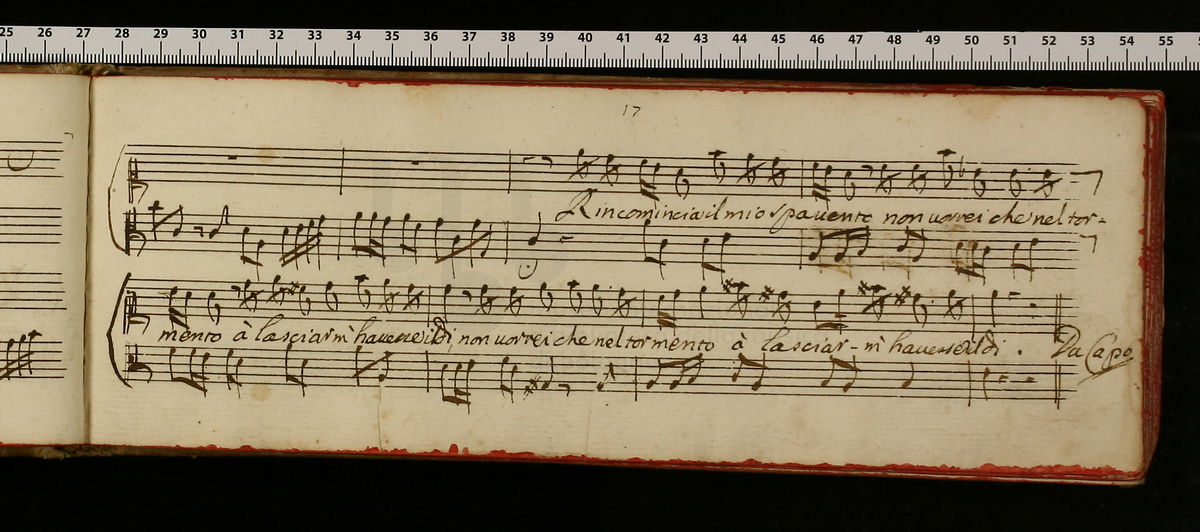 25 26 27 28 29 30 31 32 33 34 35 36 37 38 39 40 41 42 43 44 45 46 47 48 49 50 51 52 53 54 55
17
Rincomincia il mio spavento non vorrei che nel tor-
mento à lasciar m' havesse il dì, non vorrei che nel tormento à lasciar-m' havesse il dì. Da Capo